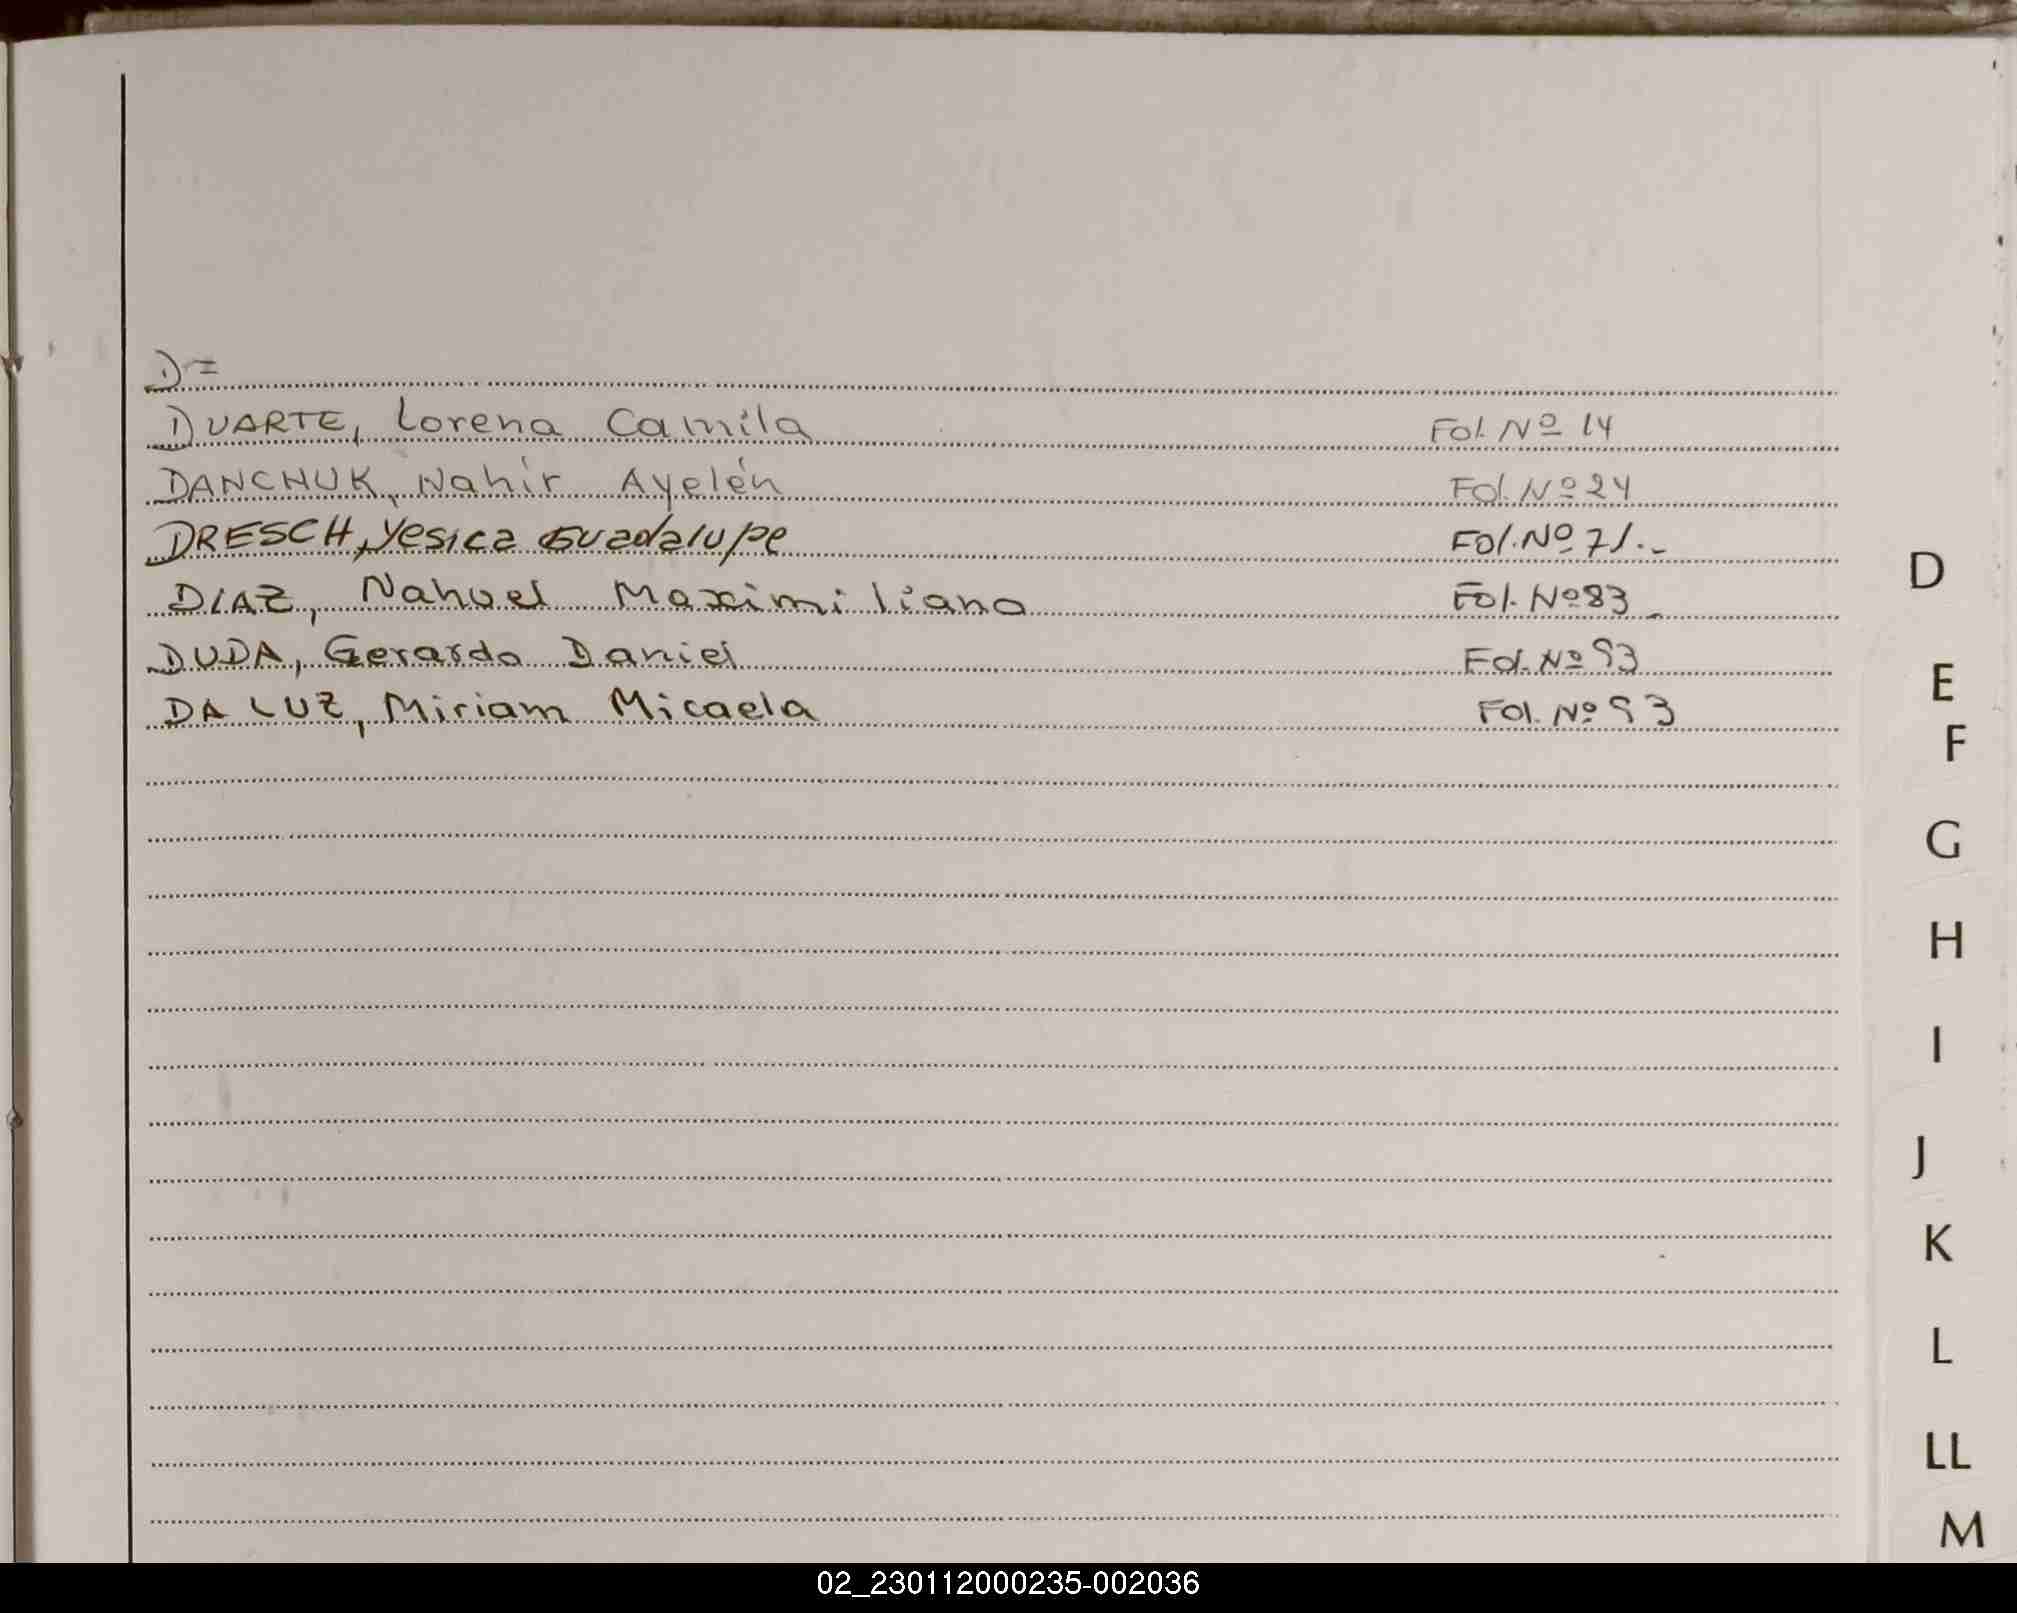 D=
DUARTE, Lorena Camila Fol. Nº 14
DANCHUK, Nahir Ayelén Fol. Nº 24
DRESCH, Yesica Guadalupe Fol. Nº 71.-
DIAZ, Nahuel Maximiliano Fol. Nº 83-
DUDA, Gerardo Daniel Fol. Nº 93
DA LUZ, Miriam Micaela Fol. Nº 93
D
E
F
G
H
I
J
K
L
LL
M
02_230112000235-002036